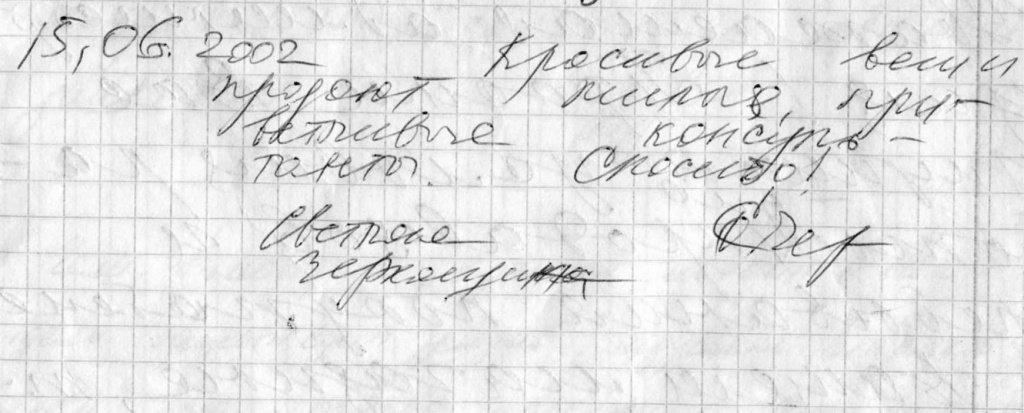 15,06. 2002 Красивые вещи
продают милые, при-
ветливые консуль-
танты. Спасибо!
Светлана